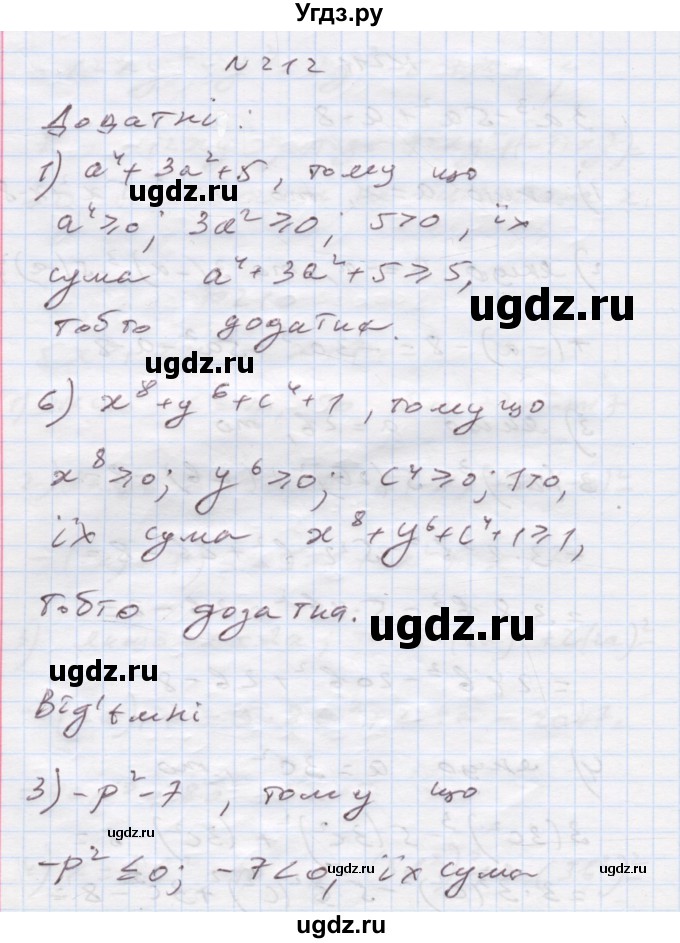 Угдз.ру
N 212
Додатні:
1) a⁴+3a²+5, тому що
ugdz.ru
a⁴≥0; 3a²≥0; 5>0, їх
сума a⁴+3a²+5≥5,
ugdz.ru
тобто додатна.
ugdz.ru
6) x⁸+y⁶+c⁴+1, тому що
x⁸≥0; y⁶≥0; c⁴≥0; 1>0,
їх сума x⁸+y⁶+c⁴+1≥1,
тобто дозатна.
ugdz.ru
ugdz.ru
Від'ємні
3) -p²-7, тому що
ugdz.ru
-p²≤0; -7<0, їх сума
ugdz.ru
ugdz.ru
ugdz.ru